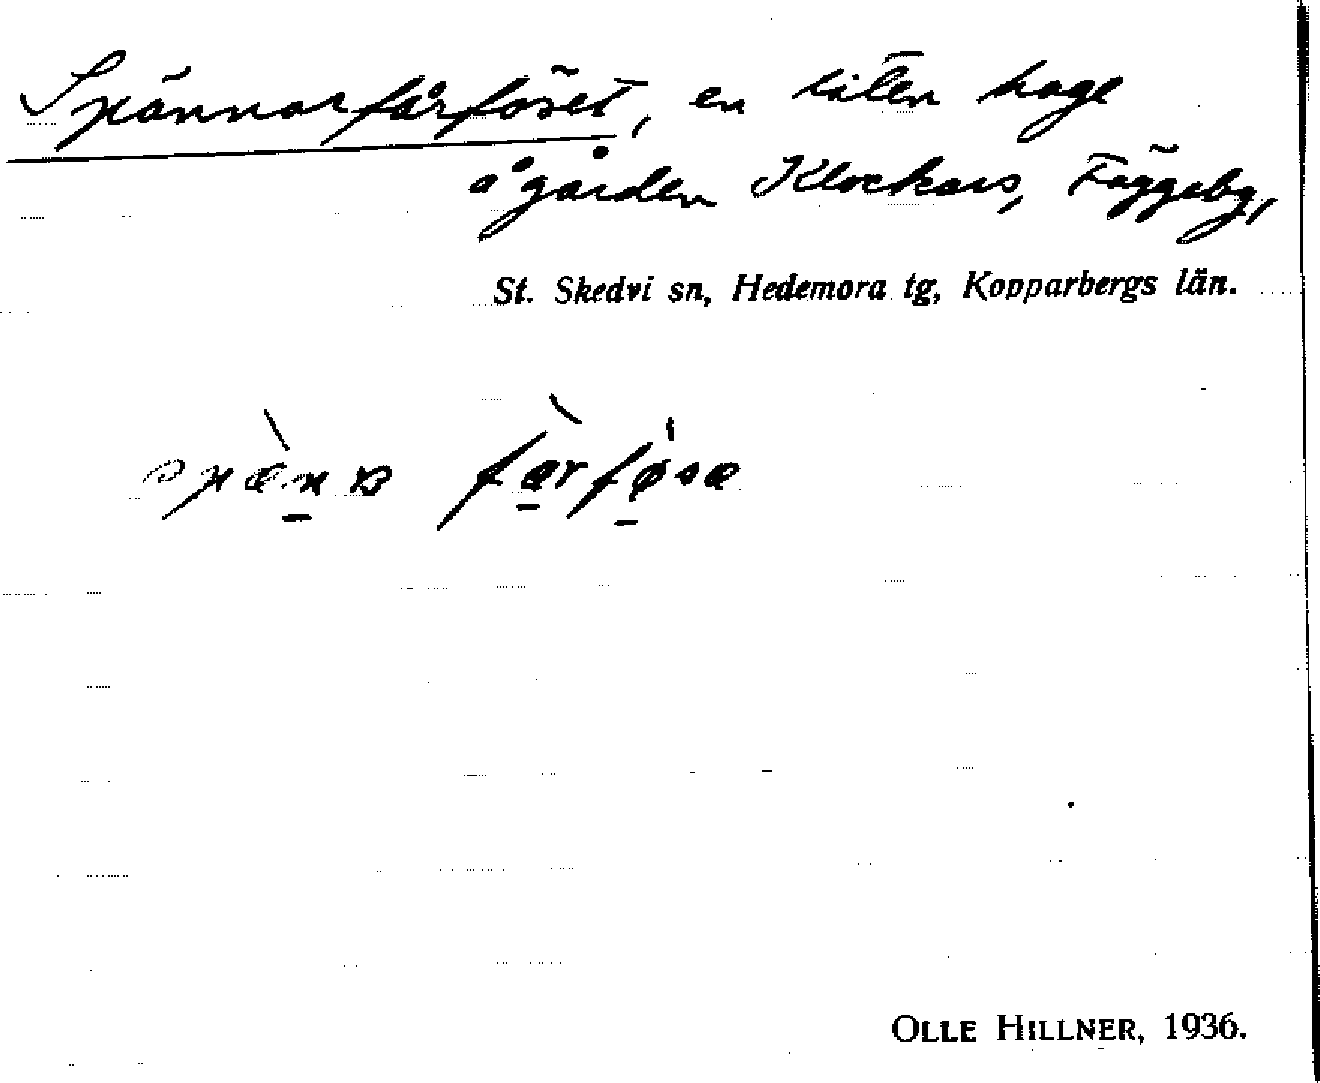 Spännarfårföset, en liten hage
å gården Klockars, Fäggeby,
St. Skedvi sn, Hedemora tg, Kopparbergs län.
spæ̀na fæ̀rfø̀sæ
OLLE HILLNER, 1936.